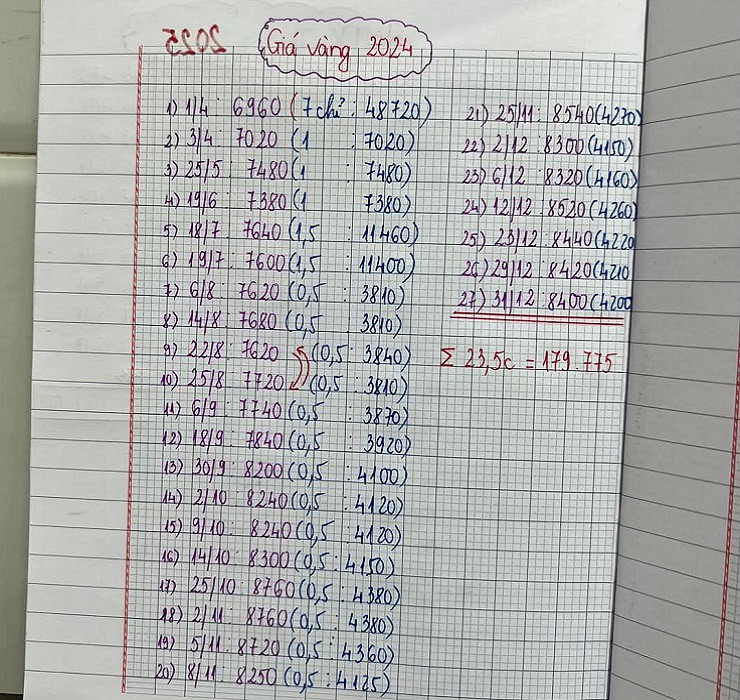 2025
Giá vàng 2024
1) 1/4 : 6960 (7 chỉ : 48720)
2) 3/4 : 7020 (1 : 7020)
3) 25/5 : 7480 (1 : 7480)
4) 19/6 : 7380 (1 7380)
5) 18/7 : 7640 (1,5 : 11460)
6) 19/7 : 7600 (1,5 : 11400)
7) 6/8 : 7620 (0,5 : 3810)
8) 14/8 : 7680 (0,5 3810)
9) 22/8 : 7620 (0,5 : 3840)
10) 25/8 : 7720 (0,5 : 3810)
11) 6/9 : 7740 (0,5 : 3870)
12) 18/9 : 7840 (0,5 : 3920)
13) 30/9 : 8200 (0,5 : 4100)
14) 2/10 : 8240 (0,5 : 4120)
15) 9/10 : 8240 (0,5 : 4120)
16) 14/10 : 8300 (0,5 : 4150)
17) 25/10 : 8760 (0,5 : 4380)
18) 2/11 : 8760 (0,5 : 4380)
19) 5/11 : 8720 (0,5 : 4360)
20) 8/11 : 8250 (0,5 : 4125)
21) 25/11 : 8540 (4270)
22) 2/12 : 8300 (4150)
23) 6/12 : 8320 (4160)
24) 12/12 : 8520 (4260)
25) 23/12 : 8440 (4220
26) 29/12 : 8420 (4210
27) 31/12 : 8400 (4200
Σ 23,5c = 179.775